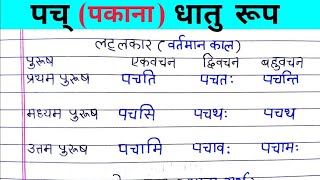 पच् (पकाना) धातु रूप
लट्लकार (वर्तमान काल)
पुरूष एकवचन द्विवचन बहुवचन
प्रथम पुरूष पचति पचतः पचन्ति
मध्यम पुरूष पचसि पचथः पचथ
उत्तम पुरूष पचामि पचावः पचामः